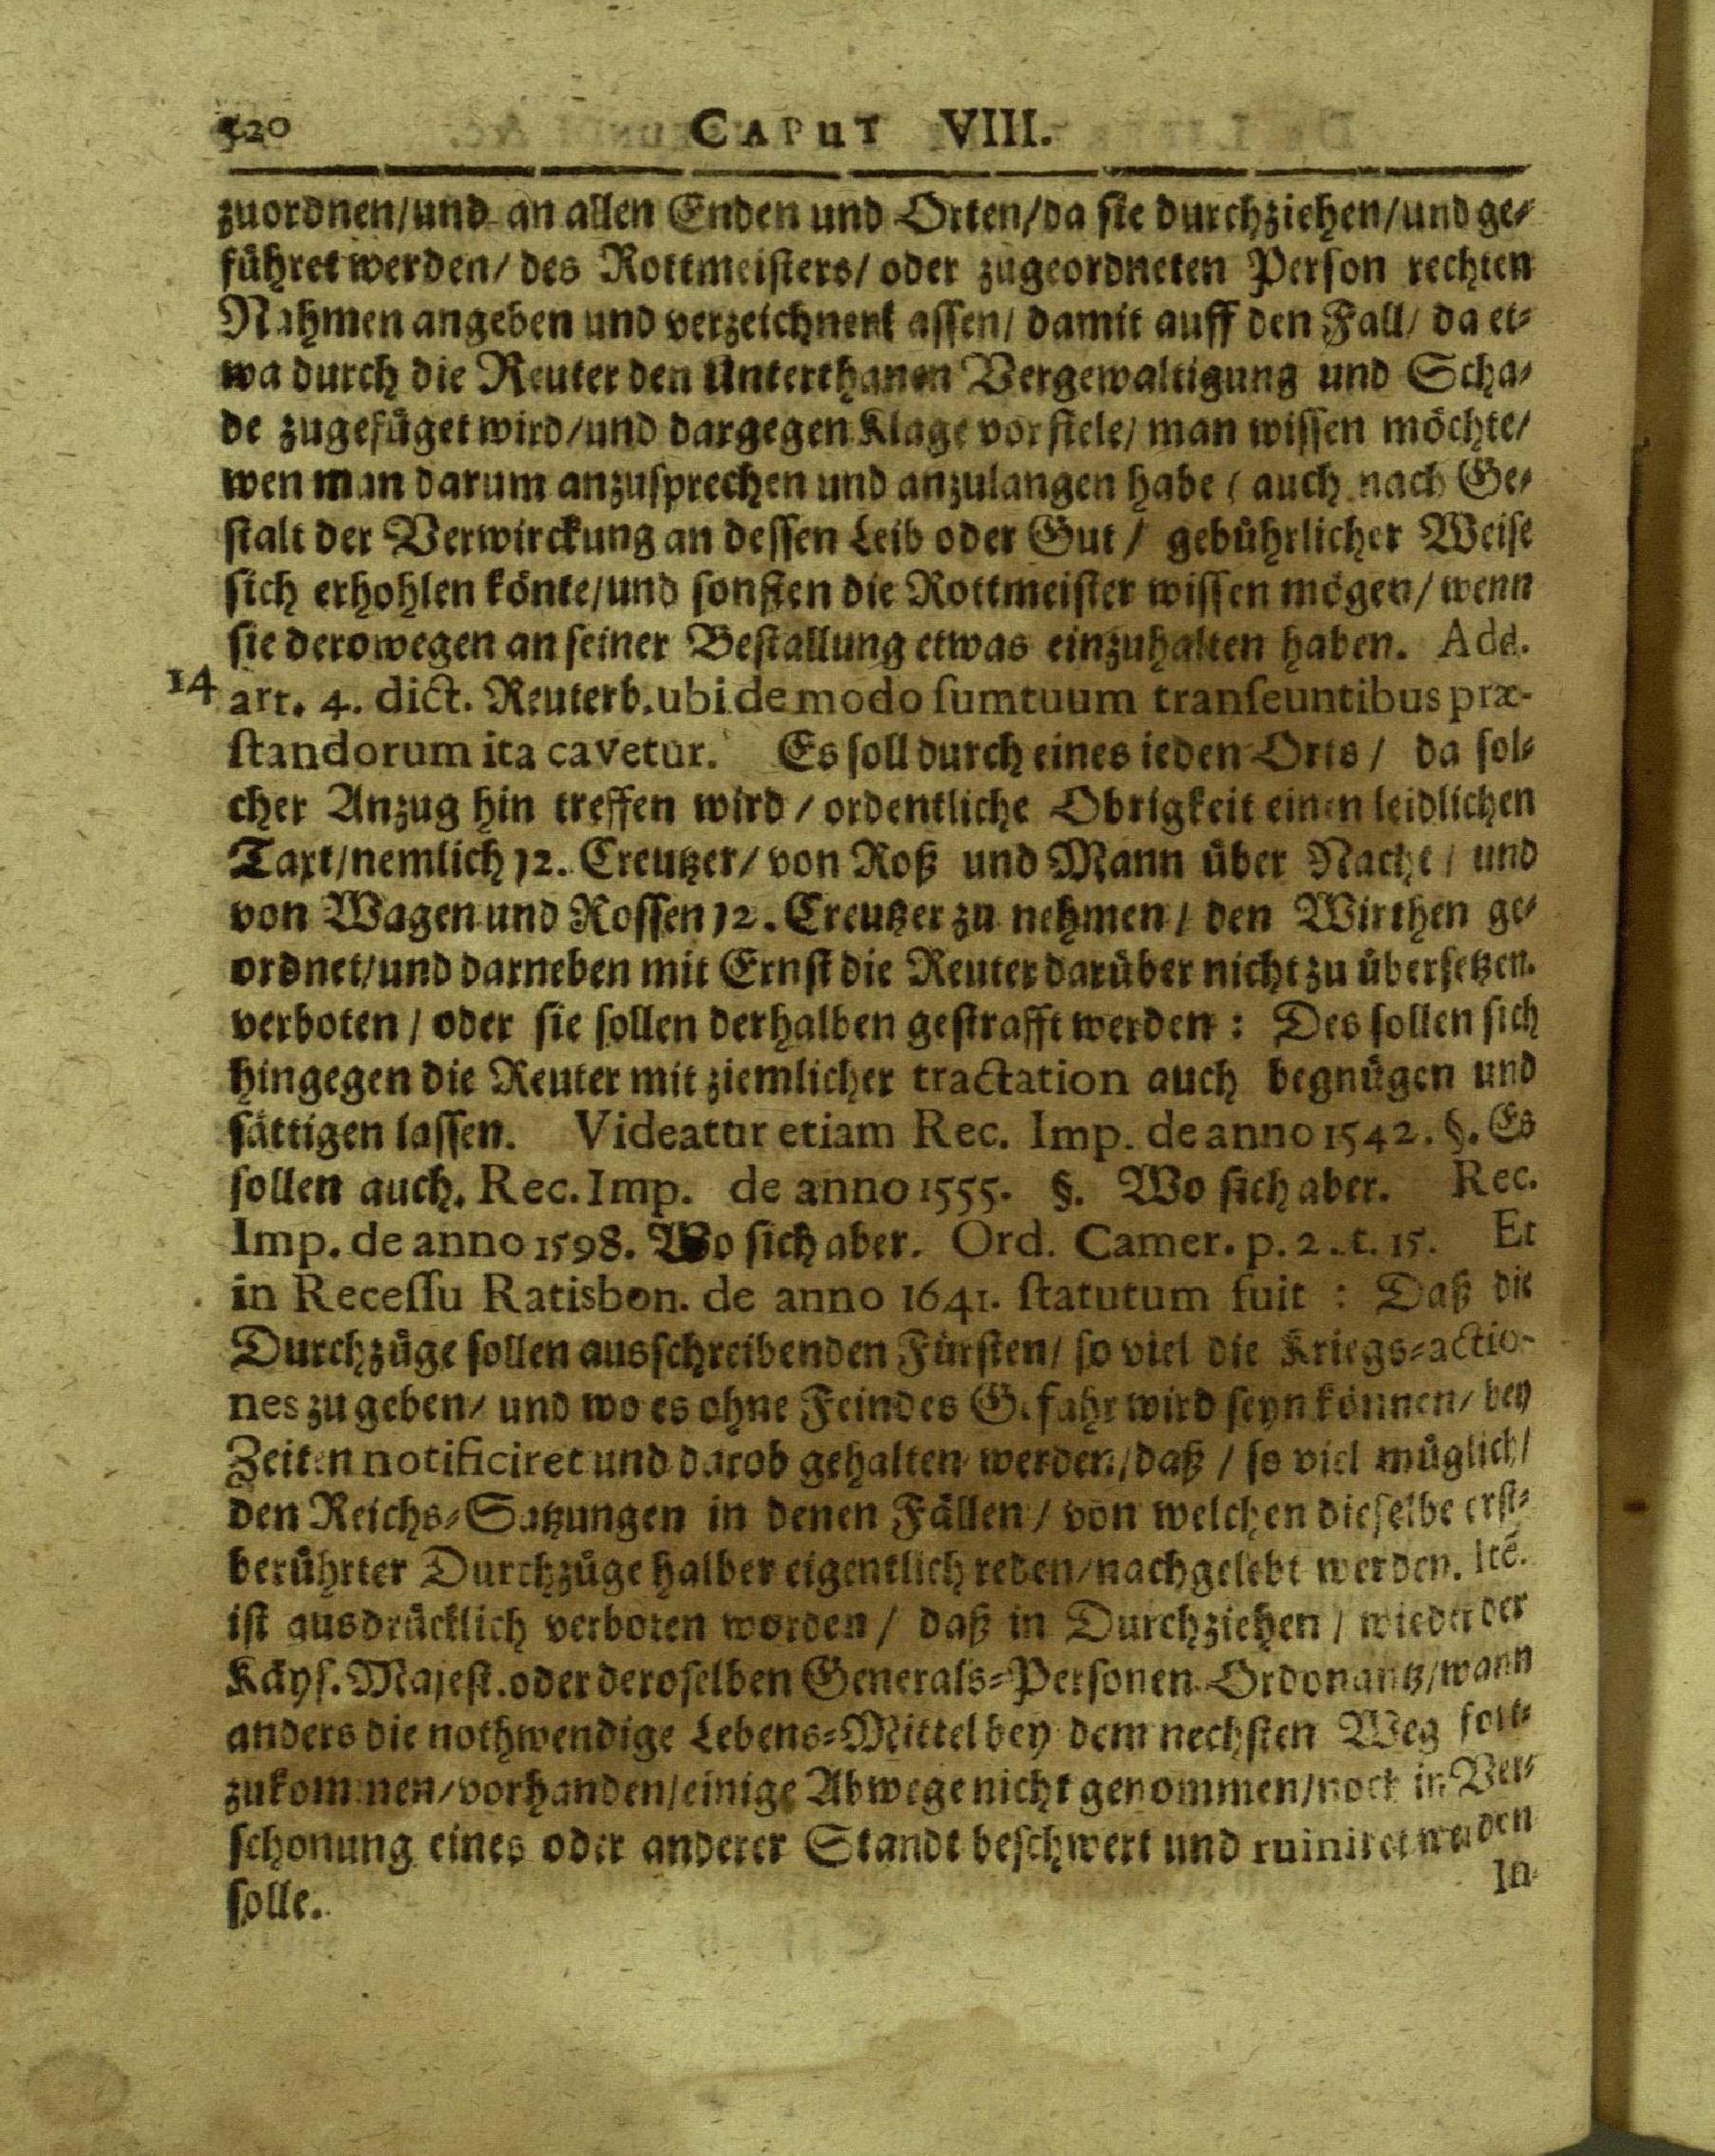 520 CAPuT VIII.
zuordnen/und an allen Enden und Orten/da sie durchziehen/und ge-
führet werden/ des Rottmeisters/ oder zugeordneten Person rechten
Nahmen angeben und verzeichnenl assen/ damit auff den Fall/ da et-
wa durch die Reuter den Unterthanen Vergewaltigung und Scha-
de zugefüget wird/und dargegen Klage vorfiele/ man wissen möchte/
wen man darum anzusprechen und anzulangen habe / auch nach Ge-
stalt der Verwirckung an dessen Leib oder Gut / gebührlicher Weise
sich erhohlen könte/und sonsten die Rottmeister wissen mögen/ wenn
sie derowegen an seiner Bestallung etwas einzuhalten haben. Add.
14 art. 4. dict. Reuterb. ubi de modo sumtuum transeuntibus præ-
standorum ita cavetur. Es soll durch eines ieden Orts / da sol-
cher Anzug hin treffen wird / ordentliche Obrigkeit einen leidlichen
Taxt/nemlich 12. Creutzer/ von Roß und Mann über Nacht / und
von Wagen und Rossen 12. Creutzer zu nehmen / den Wirthen ge-
ordnet/und darneben mit Ernst die Reuter darüber nicht zu übersetzen.
verboten / oder sie sollen derhalben gestrafft werden : Des sollen sich
hingegen die Reuter mit ziemlicher tractation auch begnügen und
sättigen lassen. Videatur etiam Rec. Imp. de anno 1542. §. Es
sollen auch. Rec. Imp. de anno 1555. §. Wo sich aber. Rec.
Imp. de anno 1598. Wo sich aber. Ord. Camer. p. 2. t. 15. Et
in Recessu Ratisbon. de anno 1641. statutum fuit : Daß die
Durchzüge sollen ausschreibenden Fürsten/ so viel die Kriegs-actio-
nes zu geben/ und wo es ohne Feindes Gefahr wird seyn können/ bey
Zeiten notificiret und darob gehalten werden/daß / so viel müglich/
den Reichs-Satzungen in denen Fällen / von welchen dieselbe erst-
berührter Durchzüge halber eigentlich reden/nachgelebt werden. Itē.
ist ausdrücklich verboten worden / daß in Durchziehen / wieder der
Käys. Majest. oder deroselben Generals-Personen Ordonantz/wann
anders die nothwendige Lebens-Mittel bey dem nechsten Weg fort-
zukommen/vorhanden/einige Abwege nicht genommen/noch in Ver-
schonung eines oder anderer Standt beschwert und ruiniret werden
solle.
In-